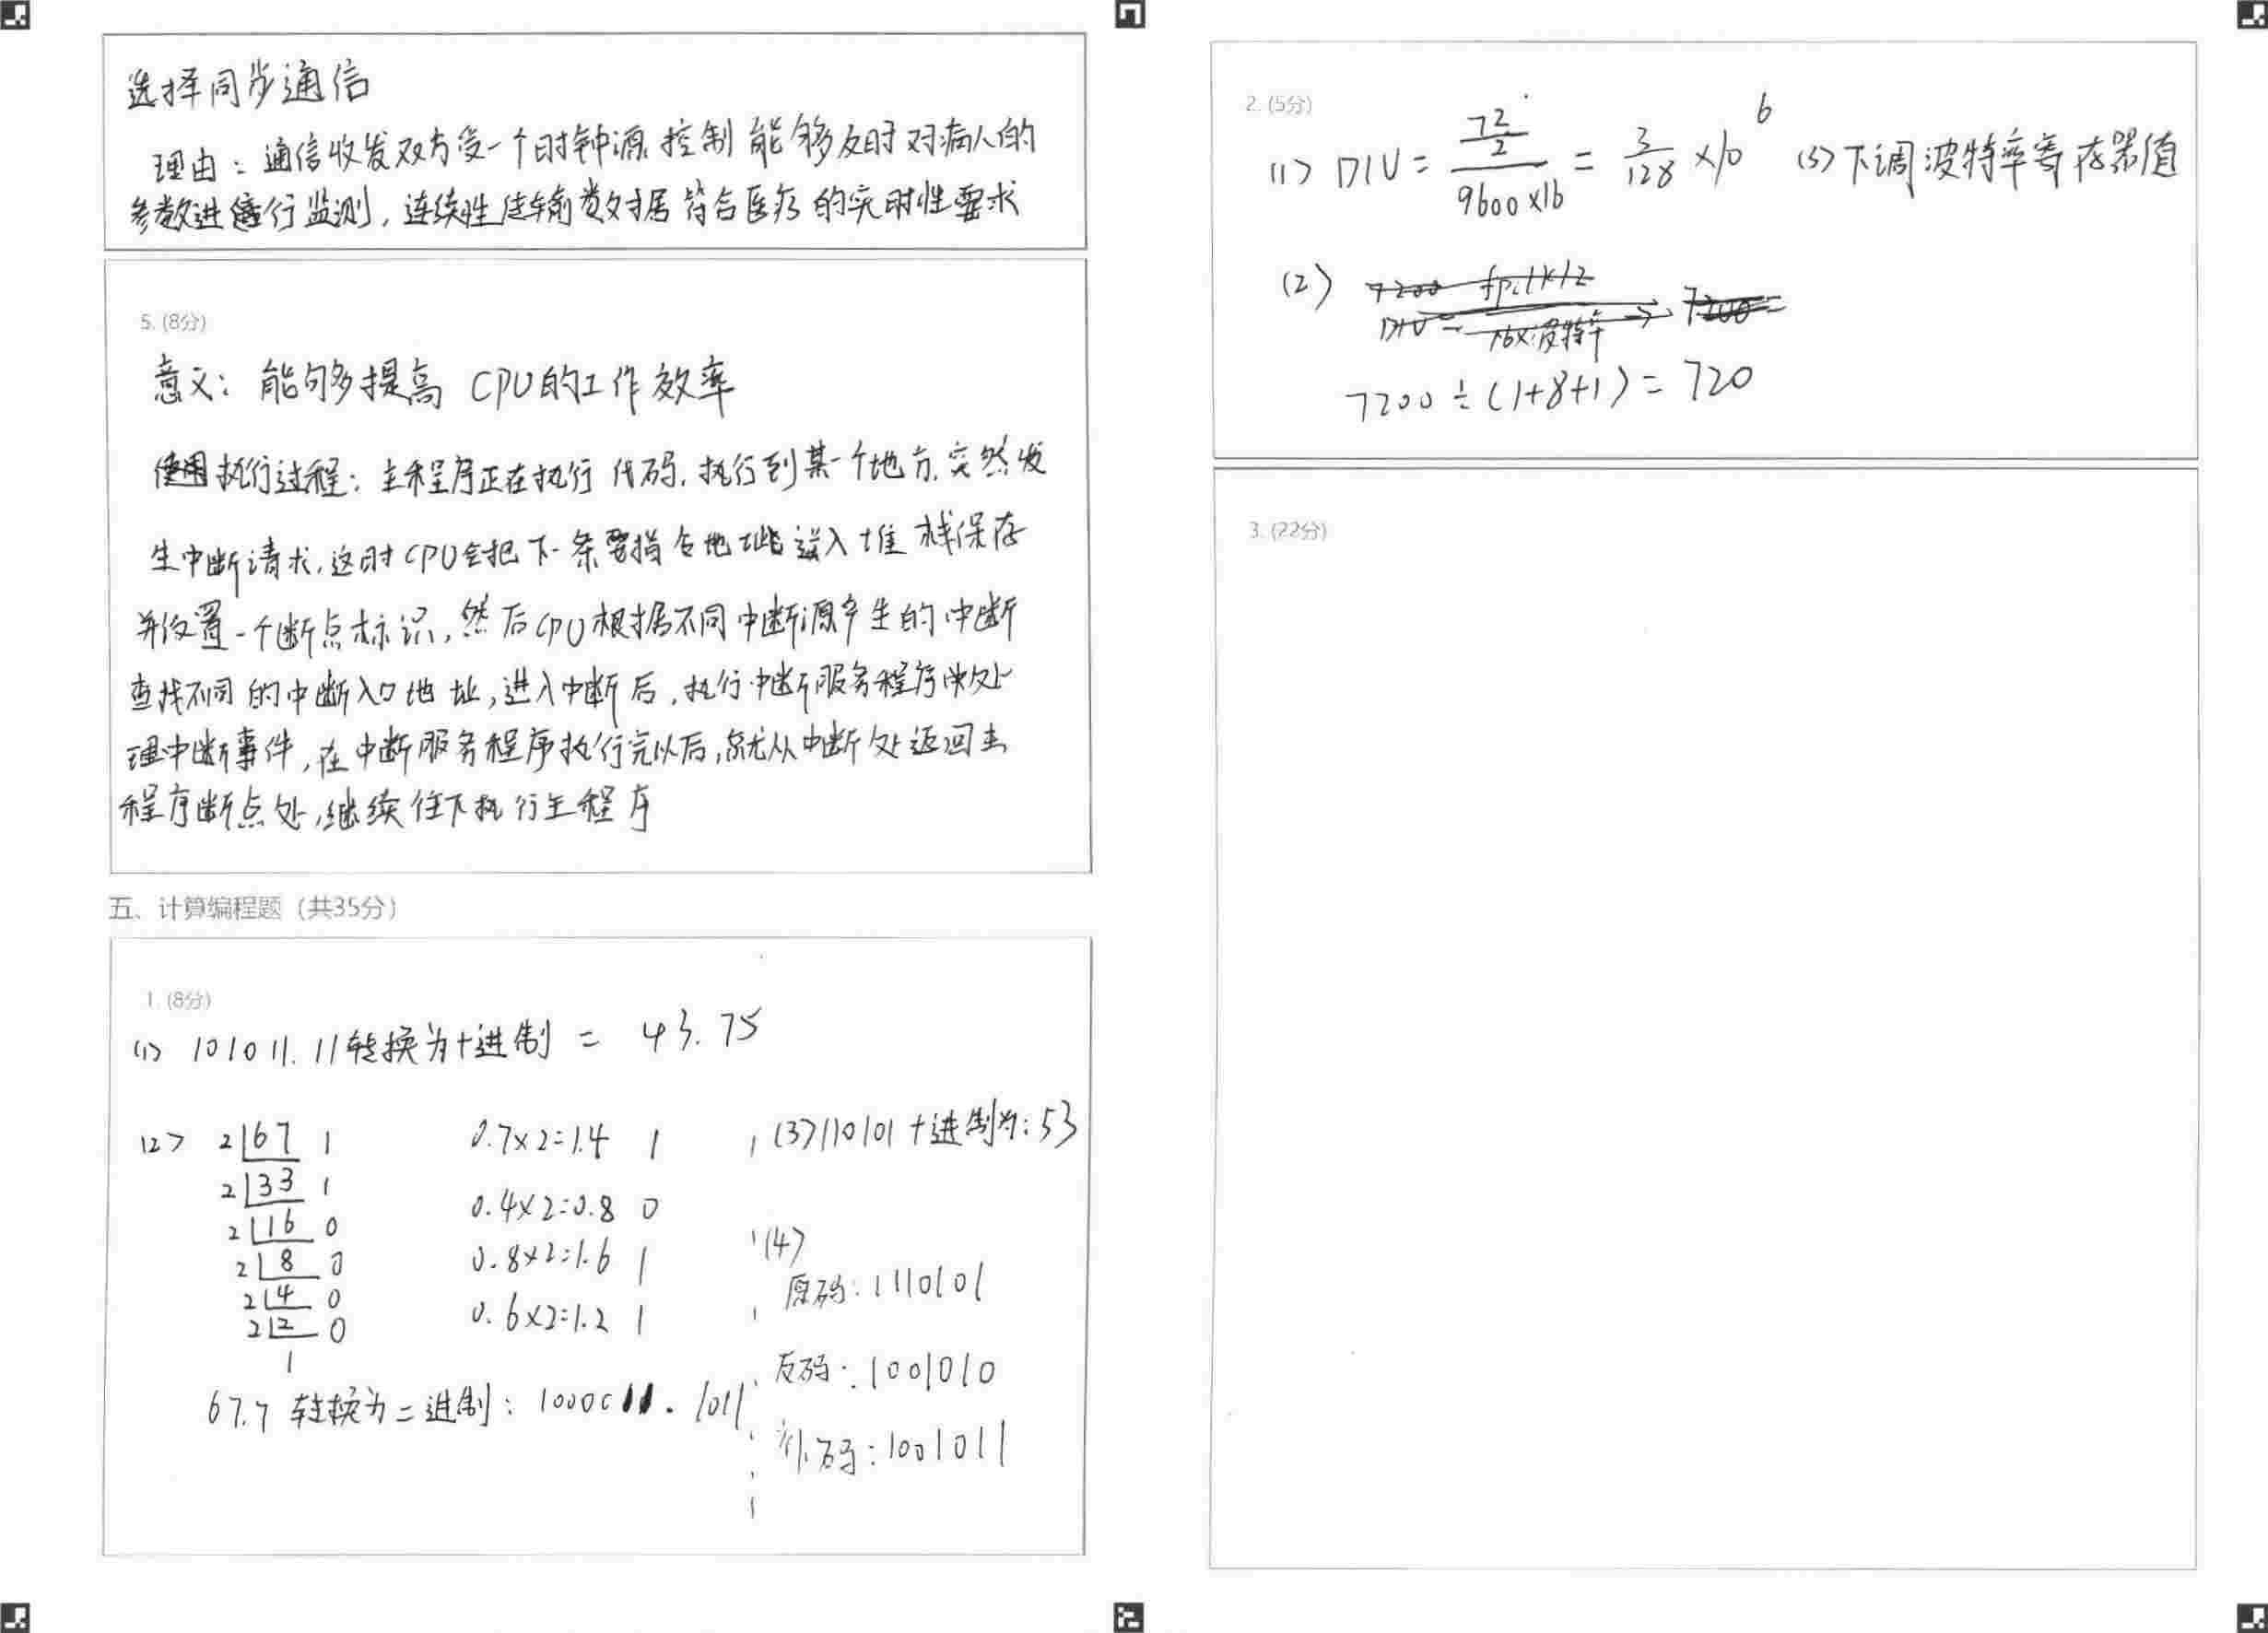 选择同步通信
理由：通信收发双方受一个时钟源控制 能够及时对病人的
参数进行监测，连续性传输数据符合医疗的实时性要求
5. (8分)
意义：能够提高 CPU的工作效率
执行过程：主程序正在执行 代码，执行到某一个地方，突然发
生中断请求，这时CPU会把下一条指令地址送入堆栈保存
并设置一个断点标识，然后CPU根据不同中断源产生的中断
查找不同的中断入口地址，进入中断后，执行中断服务程序来处
理中断事件，在中断服务程序执行完以后，就从中断处返回主
程序断点处，继续往下执行主程序
五、计算编程题（共35分）
1. (8分)
(1) 101011.11转换为十进制 = 43.75
(2) 2 67 1
2 33 1
2 16 0
2 8 0
2 4 0
2 2 0
1
0.7×2=1.4 1
0.4×2=0.8 0
0.8×2=1.6 1
0.6×2=1.2 1
67.7 转换为二进制：1000011.1011
(3) 110101 十进制为：53
(4)
原码：1110101
反码：1001010
补码：1001011
2. (5分)
(1) DIV = (72/2)/(9600×16) = 3/128 ×10^6
(3) 下调波特率寄存器值
(2)
7200÷(1+8+1) = 720
3. (22分)